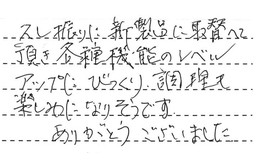 久し振りに新製品に取替へて
頂き各種機能のレベル
アップにびっくり、調理も
楽しみになりそうです。
ありがとうございました